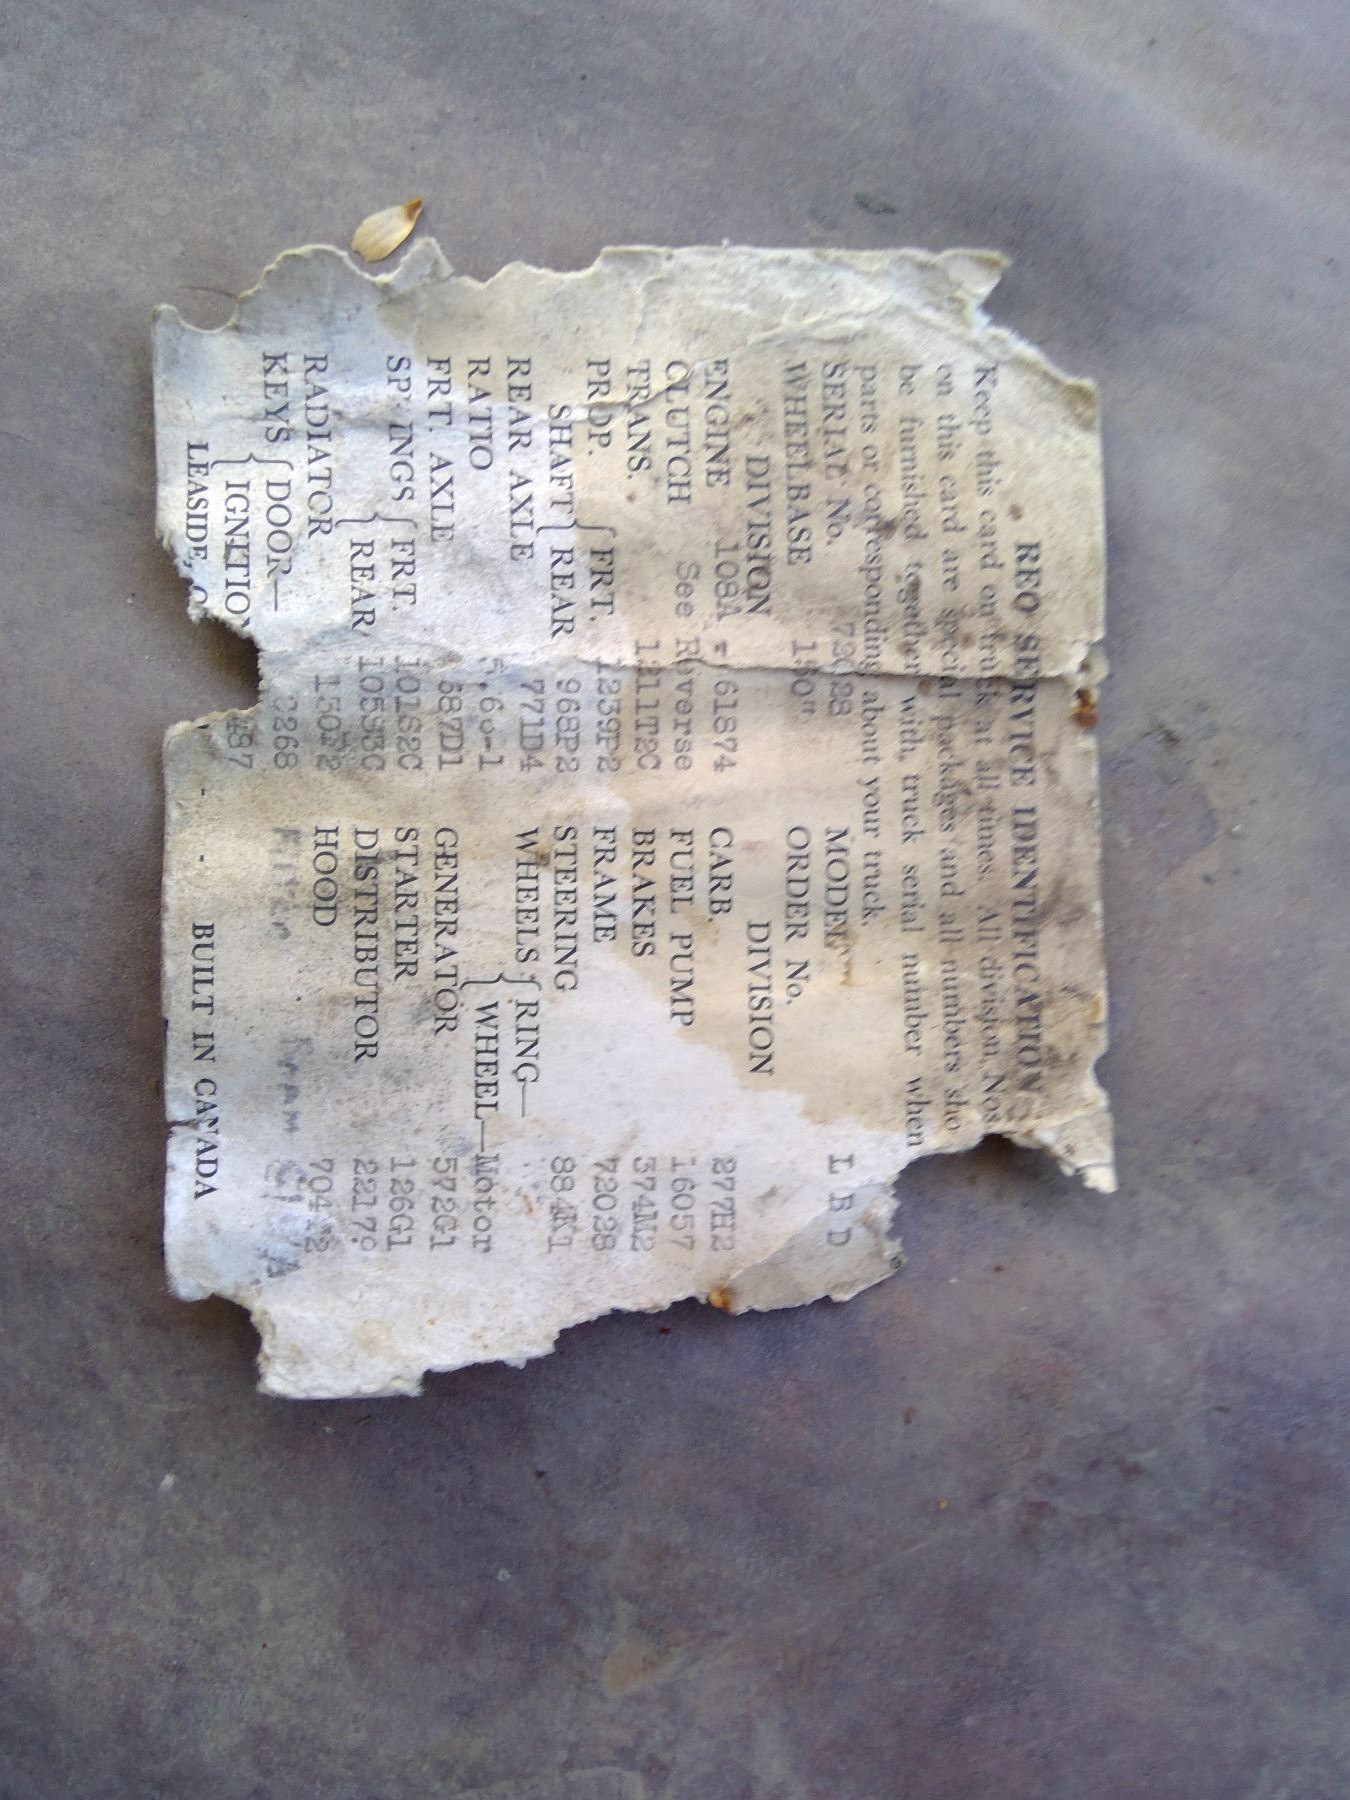 REO SERVICE IDENTIFICATION
Keep this card on truck at all times. All division Nos
on this card are special packages and all numbers sho
be furnished together with truck serial number when
parts or corresponding about your truck.
SERIAL No. MODEL L B D
WHEELBASE 150" ORDER No.
DIVISION DIVISION
ENGINE 108A - 61874 CARB. 277H2
CLUTCH See Reverse FUEL PUMP 16057
TRANS. 1211T2C BRAKES 574M2
PROP. { FRT. 1239P2 FRAME 72028
SHAFT { REAR 968P2 STEERING 884K1
REAR AXLE 771D4 WHEELS { RING—
RATIO 6.60-1 { WHEEL—Motor
FRT. AXLE 587D1 GENERATOR 572G1
SP INGS { FRT. 101S2C STARTER 126G1
{ REAR 105S3C DISTRIBUTOR 22179
RADIATOR HOOD
KEYS { DOOR— 3268 Filter Fram
{ IGNITIO 487
LEASIDE, BUILT IN CANADA